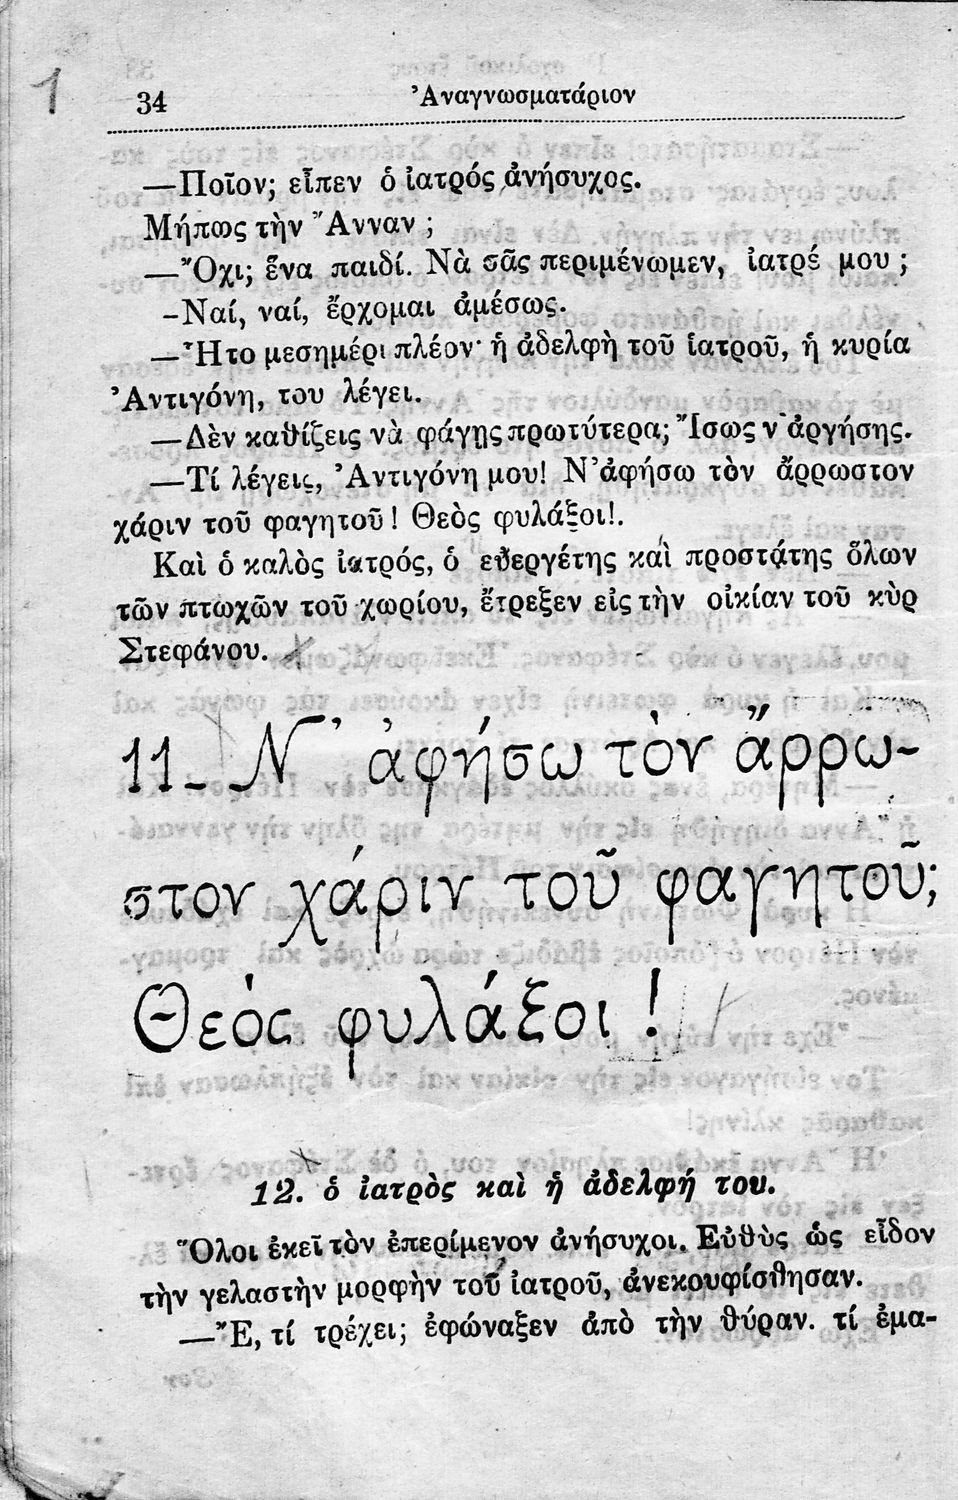 1
34 Ἀναγνωσματάριον
—Ποῖον; εἶπεν ὁ ἰατρός ἀνήσυχος.
Μήπως τὴν Ἄνναν ;
—Ὄχι; ἕνα παιδί. Νὰ σᾶς περιμένωμεν, ἰατρέ μου ;
-Ναί, ναί, ἔρχομαι ἀμέσως.
—Ἦτο μεσημέρι πλέον· ἡ ἀδελφὴ τοῦ ἰατροῦ, ἡ κυρία
Ἀντιγόνη, του λέγει.
—Δὲν καθίζεις νὰ φάγῃς πρωτύτερα; Ἴσως ν' ἀργήσῃς.
—Τί λέγεις, Ἀντιγόνη μου! Ν' ἀφήσω τὸν ἄρρωστον
χάριν τοῦ φαγητοῦ! Θεὸς φυλάξοι!.
Καὶ ὁ καλὸς ἰατρός, ὁ εὐεργέτης καὶ προστάτης ὅλων
τῶν πτωχῶν τοῦ χωρίου, ἔτρεξεν εἰς τὴν οἰκίαν τοῦ κὺρ
Στεφάνου.
11- Ν' ἀφήσω τὸν ἄρρω-
στον χάριν τοῦ φαγητοῦ;
Θεὸς φυλάξοι !
12. ὁ ἰατρὸς καὶ ἡ ἀδελφή του.
Ὅλοι ἐκεῖ τὸν ἐπερίμενον ἀνήσυχοι. Εὐθὺς ὡς εἶδον
τὴν γελαστὴν μορφὴν τοῦ ἰατροῦ, ἀνεκουφίσθησαν.
—Ἔ, τί τρέχει; ἐφώναξεν ἀπὸ τὴν θύραν. τί ἐμα-